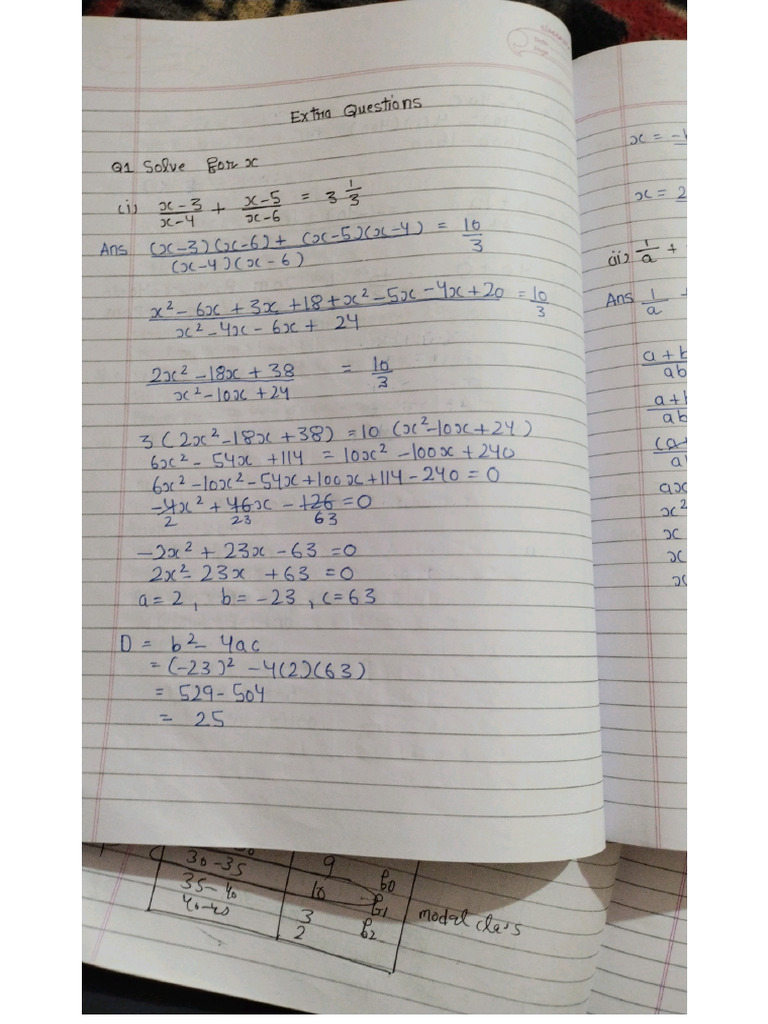 Extra Questions
Q1 Solve for x
(i) x-3/x-4 + x-5/x-6 = 3 1/3
Ans (x-3)(x-6)+(x-5)(x-4)/(x-4)(x-6) = 10/3
x²-6x+3x+18+x²-5x-4x+20/x²-4x-6x+24 = 10/3
2x²-18x+38/x²-10x+24 = 10/3
3(2x²-18x+38)=10(x²-10x+24)
6x²-54x+114=10x²-100x+240
6x²-10x²-54x+100x+114-240=0
-4x²+46x-126=0
2 23 63
-2x²+23x-63=0
2x²-23x+63=0
a=2, b=-23, c=63
D = b²-4ac
=(-23)²-4(2)(63)
= 529-504
= 25
x = -
x = 2
(ii) 1/a +
Ans 1/a
a+b/ab
a+b/ab
ax
x²
x
x
x
30-35 9 f0
35-40 10 f1 modal class
3 f2
2